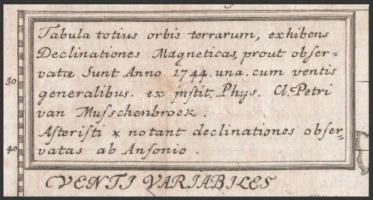 Tabula totius orbis terrarum, exhibens
Declinationes Magneticas, prout obser=
vatæ Sunt Anno 1744. una. cum ventis
generalibus. ex instit. Phys. Cl. Petri
van Musschenbroek.
Asteristi * notant declinationes obser=
vatas ab Ansonio.
30
40
VENTI VARIABILES